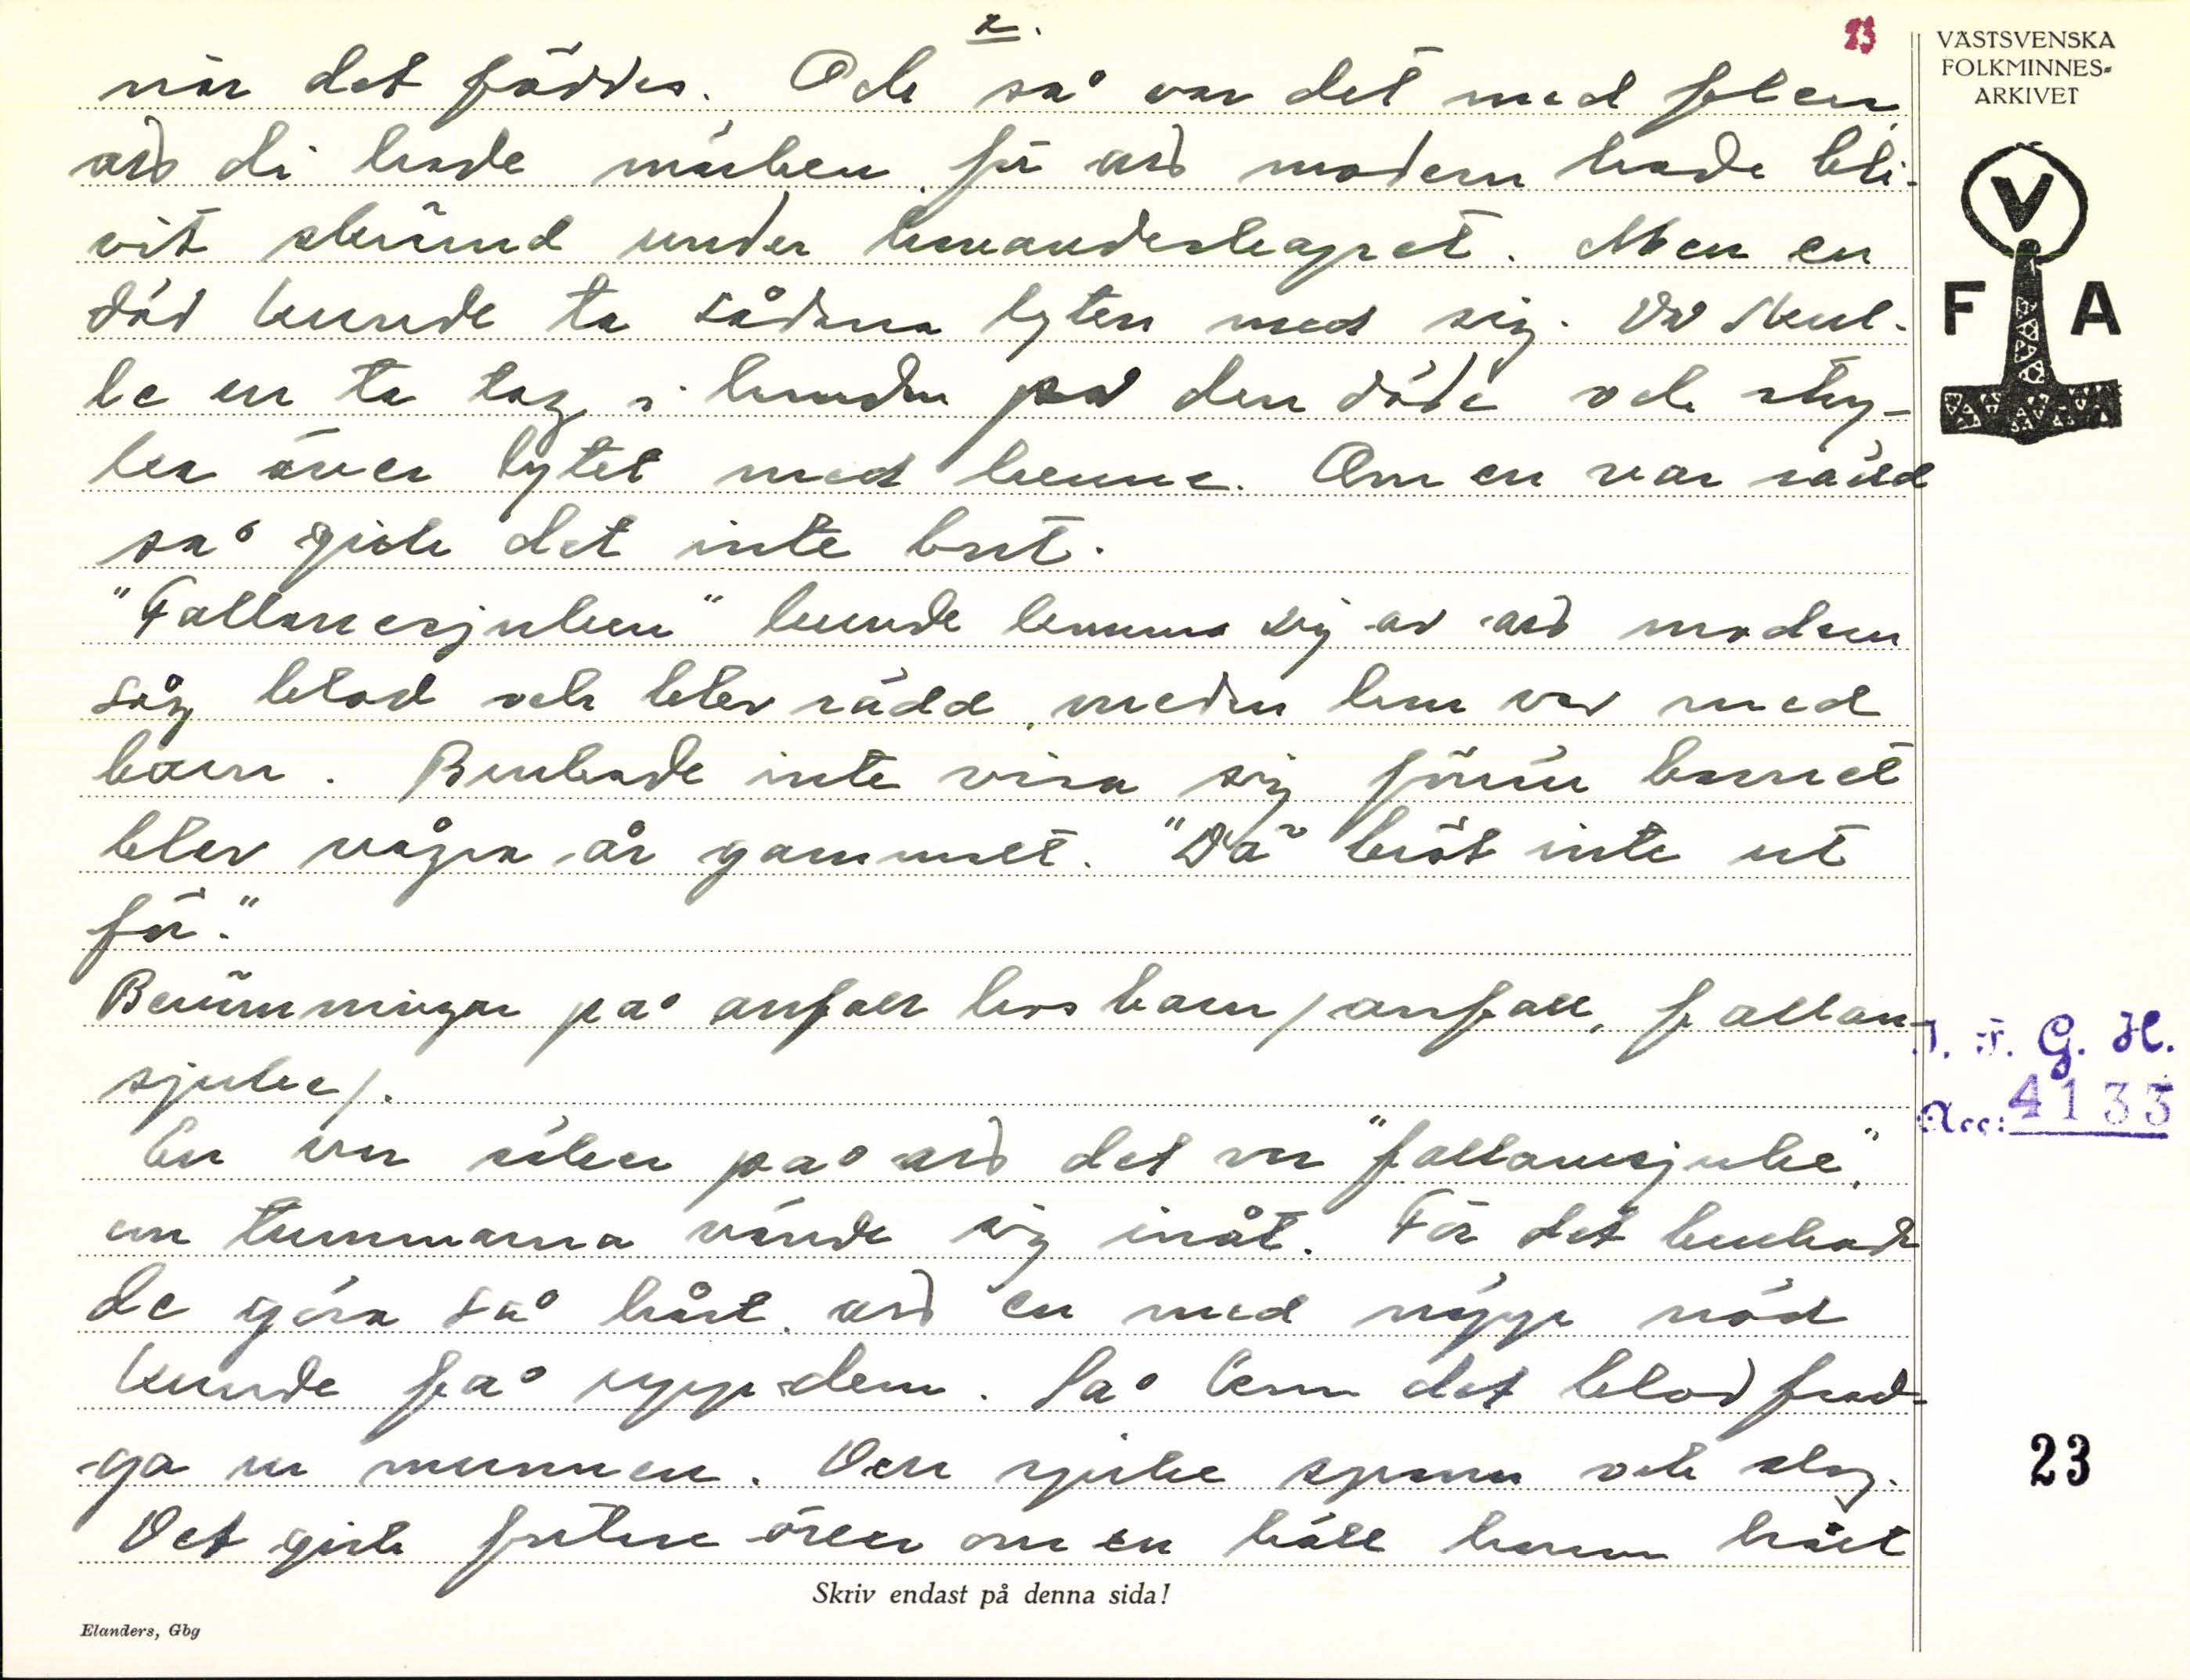 2.
23
när det föddes. Och så var det med flera,
att di hade märken, för att modern hade bli-
vit skrämd under havandeskapet. Men en
död kunde ta sådana lyten med sig. Då skul-
le en ta tag i handen på den döde och stry-
ka över lytet med henne. Om en var rädd
så gick det inte bort.
"Fallanesjuken" kunde komma sig av att modern
såg blod och blev rädd, medan hon var med
barn. Brukade inte visa sig förrän barnet
blev några år gammalt. "Dä bröt inte ut
för."
Benämningar på anfall hos barn / anfall, fallan-
sjuke/.
En var säker på att det var "fallanesjuke",
om tummarna vände sig inåt. För det brukade
de göra så hårt, att en med nöpp nöd
kunde få upp dem. Så kom det blod frad-
ga ur munnen. Den sjuke spann och slog.
Det gick fortare över om en höll honom hårt
Skriv endast på denna sida!
Elanders, Gbg
VÄSTSVENSKA
FOLKMINNES-
ARKIVET
V
F A
I. F. G. H.
Acc: 4133
23